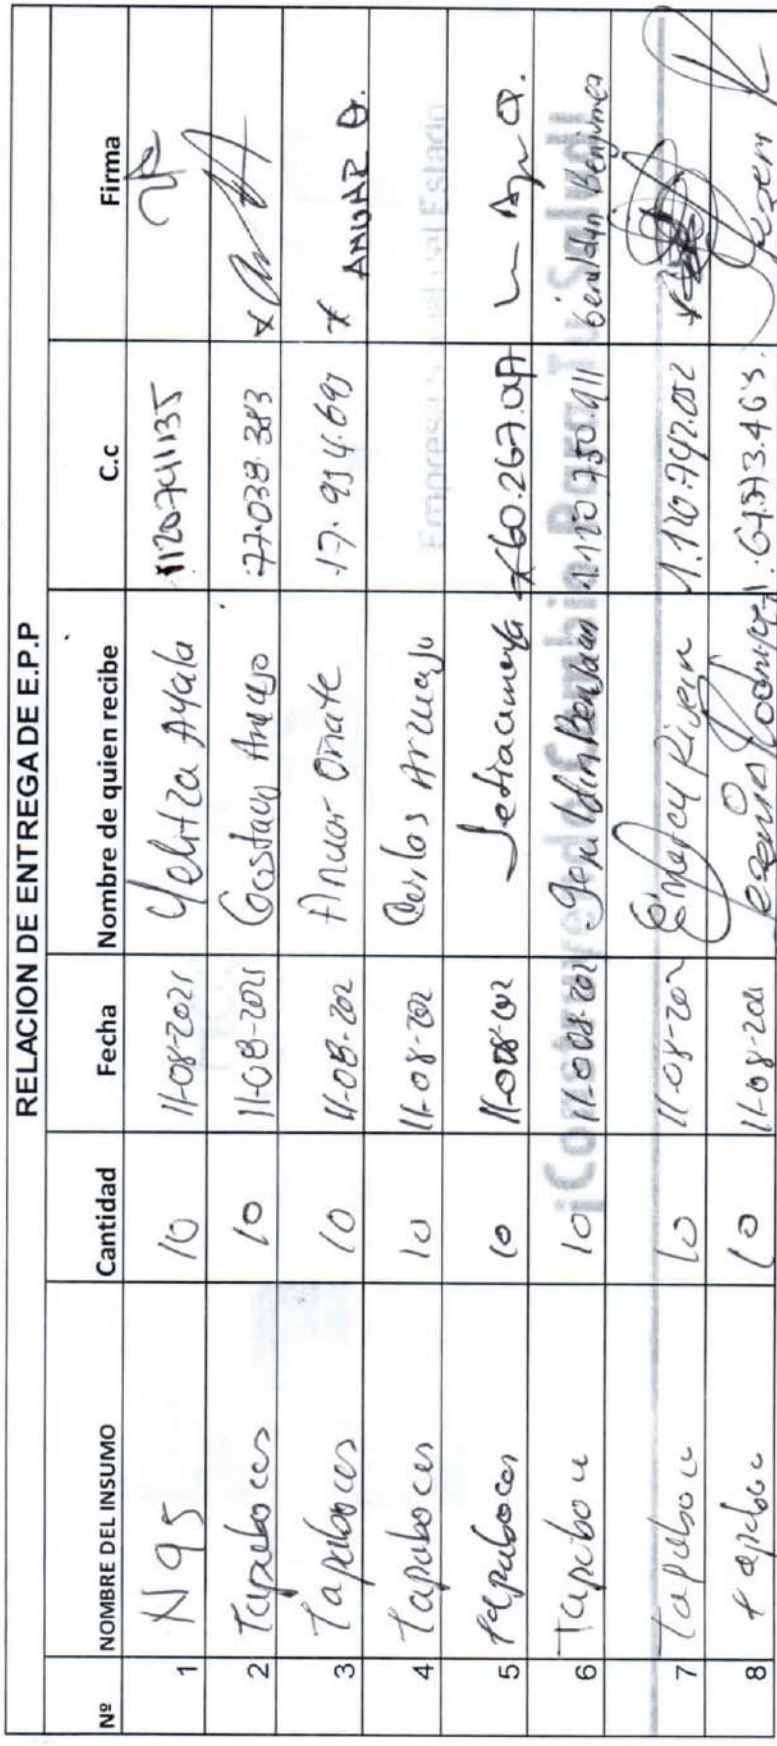 RELACION DE ENTREGA DE E.P.P
Nº NOMBRE DEL INSUMO Cantidad Fecha Nombre de quien recibe C.c Firma
1 N95 10 11-08-2021 Yelitza Ayala 1120741135
2 Tapabocas 10 11-08-2021 Gustavo Araujo 77.039.383
3 Tapabocas 10 11-08-202 Anuar Oñate 17.954.690 x ANUAR O.
4 Tapabocas 10 11-08-202 Carlos Arzuaju
5 Tapabocas 10 11-008-202
6 Tapaboc 10 11-008-202 1.120.750.911 Geraldin Benjumea
7 Tapaboc 10 11-08-202 Emercy Rivera 1.120.742.052
8 tapaboc 10 11-08-202 Rodriguez
Empresa Social del Estado
¡Construyendo el Cambio Para Tu Salud!